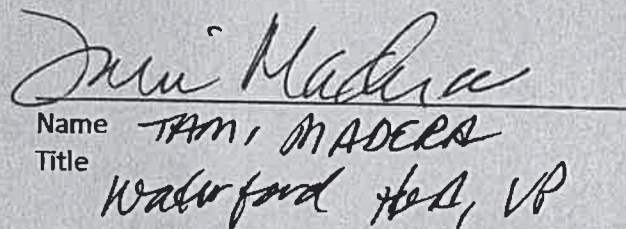 Tami Madera
Name TAMI MADERA
Title
Waterford HOA, VP